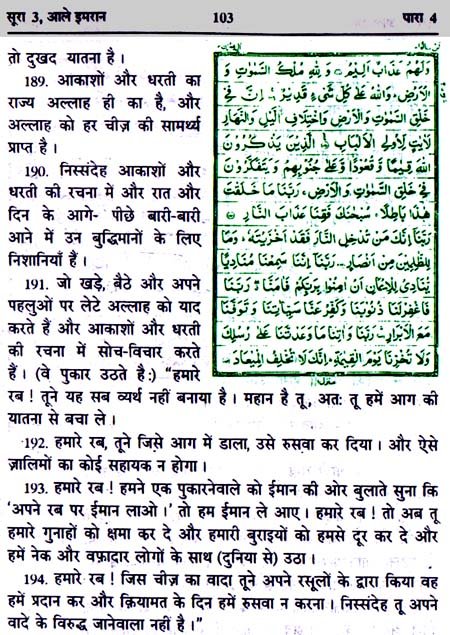 सूरा 3, आले इमरान 103 पारा 4
तो दुखद यातना है ।
189. आकाशों और धरती का
राज्य अल्लाह ही का है, और
अल्लाह को हर चीज़ की सामर्थ्य
प्राप्त है ।
190. निस्संदेह आकाशों और
धरती की रचना में और रात और
दिन के आगे- पीछे बारी-बारी
आने में उन बुद्धिमानों के लिए
निशानियाँ हैं ।
191. जो खड़े, बैठे और अपने
पहलुओं पर लेटे अल्लाह को याद
करते हैं और आकाशों और धरती
की रचना में सोच-विचार करते
हैं । (वे पुकार उठते है:) “हमारे
रब ! तूने यह सब व्यर्थ नहीं बनाया है । महान है तू, अत: तू हमें आग की
यातना से बचा ले ।
192. हमारे रब, तूने जिसे आग में डाला, उसे रुसवा कर दिया । और ऐसे
ज़ालिमों का कोई सहायक न होगा ।
193. हमारे रब ! हमने एक पुकारनेवाले को ईमान की ओर बुलाते सुना कि
‘अपने रब पर ईमान लाओ ।’ तो हम ईमान ले आए । हमारे रब ! तो अब तू
हमारे गुनाहों को क्षमा कर दे और हमारी बुराइयों को हमसे दूर कर दे और
हमें नेक और वफ़ादार लोगों के साथ (दुनिया से) उठा ।
194. हमारे रब ! जिस चीज़ का वादा तूने अपने रसूलों के द्वारा किया वह
हमें प्रदान कर और क़ियामत के दिन हमें रुसवा न करना । निस्संदेह तू अपने
वादे के विरुद्ध जानेवाला नहीं है ।”
وَلَهُمْ عَذَابٌ اَلِيْمٌ وَلِلّٰهِ مُلْكُ السَّمٰوٰتِ وَ
الْاَرْضِ وَاللّٰهُ عَلٰى كُلِّ شَيْءٍ قَدِيْرٌ اِنَّ فِيْ
خَلْقِ السَّمٰوٰتِ وَالْاَرْضِ وَاخْتِلَافِ الَّيْلِ وَالنَّهَارِ
لَاٰيٰتٍ لِّاُولِي الْاَلْبَابِ الَّذِيْنَ يَذْكُرُوْنَ
اللّٰهَ قِيٰمًا وَّقُعُوْدًا وَّعَلٰى جُنُوْبِهِمْ وَيَتَفَكَّرُوْنَ
فِيْ خَلْقِ السَّمٰوٰتِ وَالْاَرْضِ رَبَّنَا مَا خَلَقْتَ
هٰذَا بَاطِلًا سُبْحٰنَكَ فَقِنَا عَذَابَ النَّارِ
رَبَّنَا اِنَّكَ مَنْ تُدْخِلِ النَّارَ فَقَدْ اَخْزَيْتَهٗ وَمَا
لِلظّٰلِمِيْنَ مِنْ اَنْصَارٍ رَبَّنَا اِنَّنَا سَمِعْنَا مُنَادِيًا
يُّنَادِيْ لِلْاِيْمَانِ اَنْ اٰمِنُوْا بِرَبِّكُمْ فَاٰمَنَّا رَبَّنَا
فَاغْفِرْ لَنَا ذُنُوْبَنَا وَكَفِّرْ عَنَّا سَيِّاٰتِنَا وَتَوَفَّنَا
مَعَ الْاَبْرَارِ رَبَّنَا وَاٰتِنَا مَا وَعَدْتَّنَا عَلٰى رُسُلِكَ
وَلَا تُخْزِنَا يَوْمَ الْقِيٰمَةِ اِنَّكَ لَا تُخْلِفُ الْمِيْعَادَ